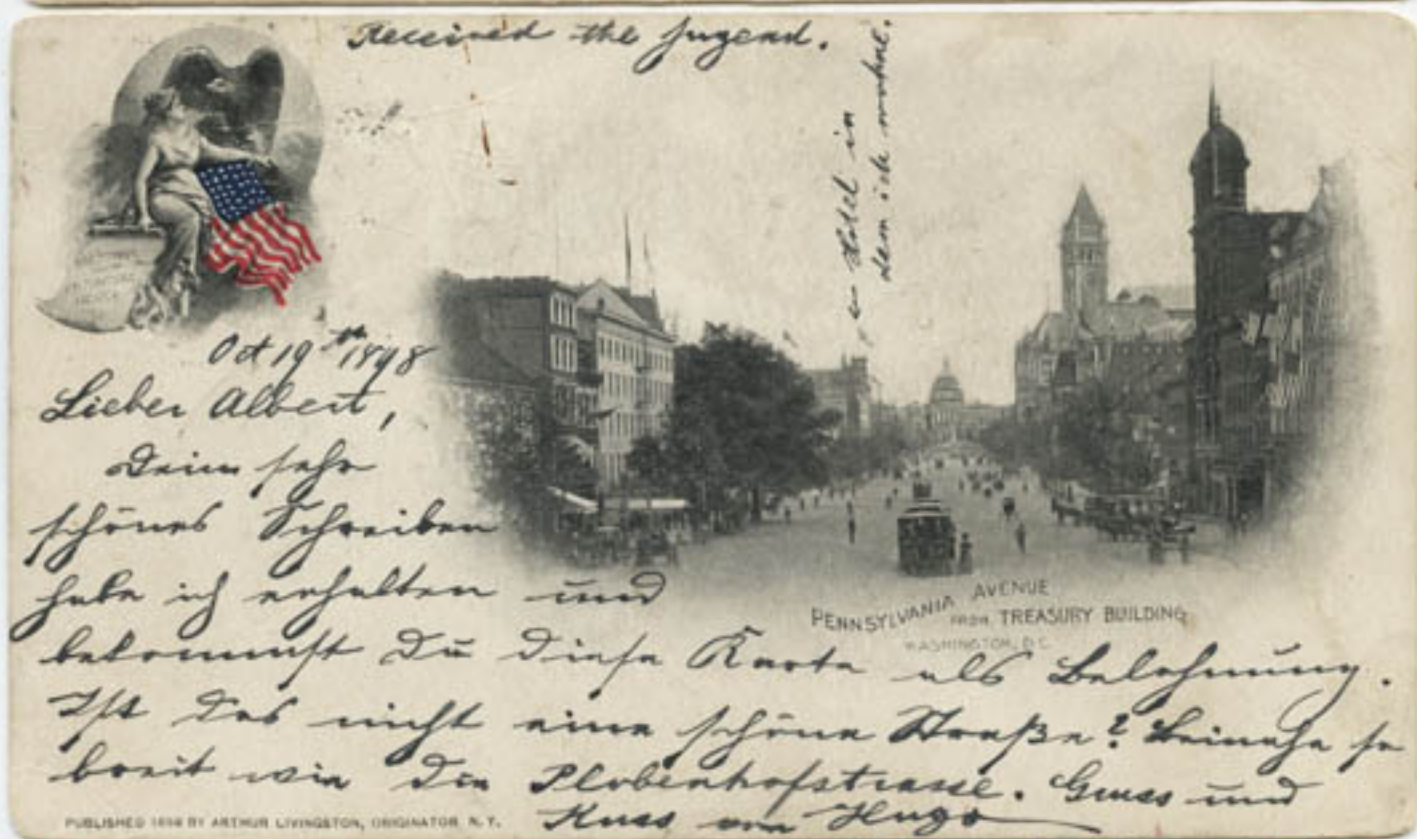 Received the Jugend.
Hotel in
dem ich wohne.
Oct 19th 1898
Lieber Albert,
Dein sehr
schönes Schreiben
habe ich erhalten und
bekommst Du diese Karte als Belohnung.
Ist das nicht eine schöne Straße? Beinahe so
breit wie die Plobenhofstrasse. Gruss und
Kuss von Hugo
PENNSYLVANIA AVENUE
FROM TREASURY BUILDING
WASHINGTON, D.C.
PUBLISHED 1898 BY ARTHUR LIVINGSTON, ORIGINATOR N.Y.